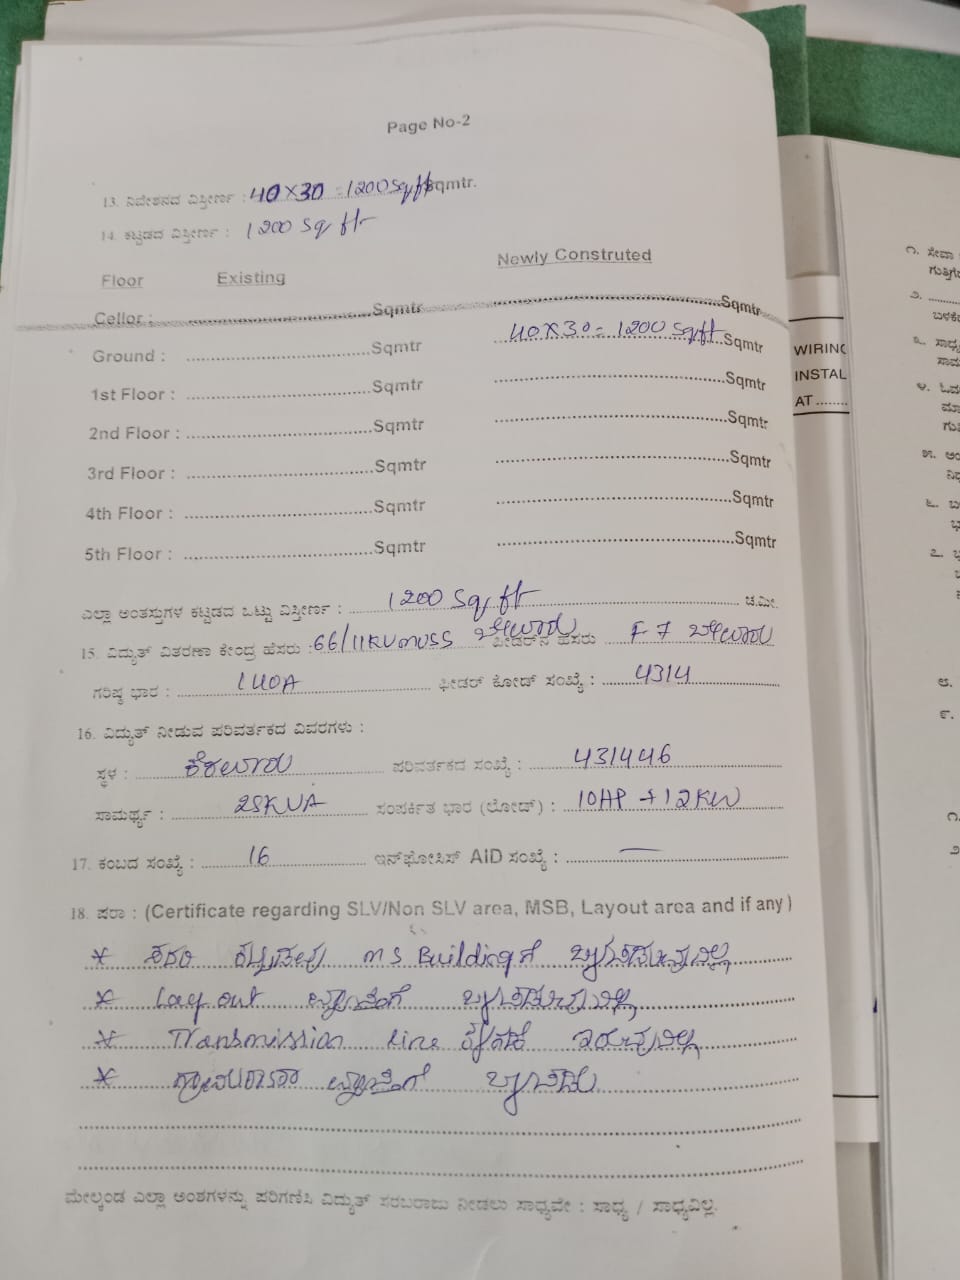 Page No-2
13. ನಿವೇಶನದ ವಿಸ್ತೀರ್ಣ : 40×30 = 1200 Sq ft Sqmtr.
14. ಕಟ್ಟಡದ ವಿಸ್ತೀರ್ಣ : 1200 Sq ft
Floor Existing Newly Construted
Cellor : ........Sqmtr ........Sqmtr
Ground : ........Sqmtr 40×30= 1200 Sqft Sqmtr
1st Floor : ........Sqmtr ........Sqmtr
2nd Floor : ........Sqmtr ........Sqmtr
3rd Floor : ........Sqmtr ........Sqmtr
4th Floor : ........Sqmtr ........Sqmtr
5th Floor : ........Sqmtr ........Sqmtr
ಎಲ್ಲಾ ಅಂತಸ್ತುಗಳ ಕಟ್ಟಡದ ಒಟ್ಟು ವಿಸ್ತೀರ್ಣ : 1200 Sq ft ಚ.ಮೀ.
15. ವಿದ್ಯುತ್ ವಿತರಣಾ ಕೇಂದ್ರ ಹೆಸರು : 66/11KV MUSS ಫೀಡರ್‌ನ ಹೆಸರು F7
ಗರಿಷ್ಠ ಭಾರ : 140A ಫೀಡರ್ ಕೋಡ್ ಸಂಖ್ಯೆ : 4314
16. ವಿದ್ಯುತ್ ನೀಡುವ ಪರಿವರ್ತಕದ ವಿವರಗಳು :
ಸ್ಥಳ : ಪರಿವರ್ತಕದ ಸಂಖ್ಯೆ : 431446
ಸಾಮರ್ಥ್ಯ : 25KVA ಸಂಪರ್ಕಿತ ಭಾರ (ಲೋಡ್) : 10HP + 12KW
17. ಕಂಬದ ಸಂಖ್ಯೆ : 16 ಇನ್‌ಫೋಸಿಸ್ AID ಸಂಖ್ಯೆ : —
18. ಷರಾ : (Certificate regarding SLV/Non SLV area, MSB, Layout area and if any)
* ಸದರಿ ಕಟ್ಟಡವು MS Buildingಗೆ ಬರುವುದಿಲ್ಲ
* Lay out ವ್ಯಾಪ್ತಿಗೆ ಬರುವುದಿಲ್ಲ
* Transmission line ಕೆಳಗಡೆ ಇರುವುದಿಲ್ಲ
* ವ್ಯಾಪ್ತಿಗೆ
ಮೇಲ್ಕಂಡ ಎಲ್ಲಾ ಅಂಶಗಳನ್ನು ಪರಿಗಣಿಸಿ ವಿದ್ಯುತ್ ಸರಬರಾಜು ನೀಡಲು ಸಾಧ್ಯವೇ : ಸಾಧ್ಯ / ಸಾಧ್ಯವಿಲ್ಲ.
WIRING
INSTAL
AT ........
೧. ಸೇವಾ